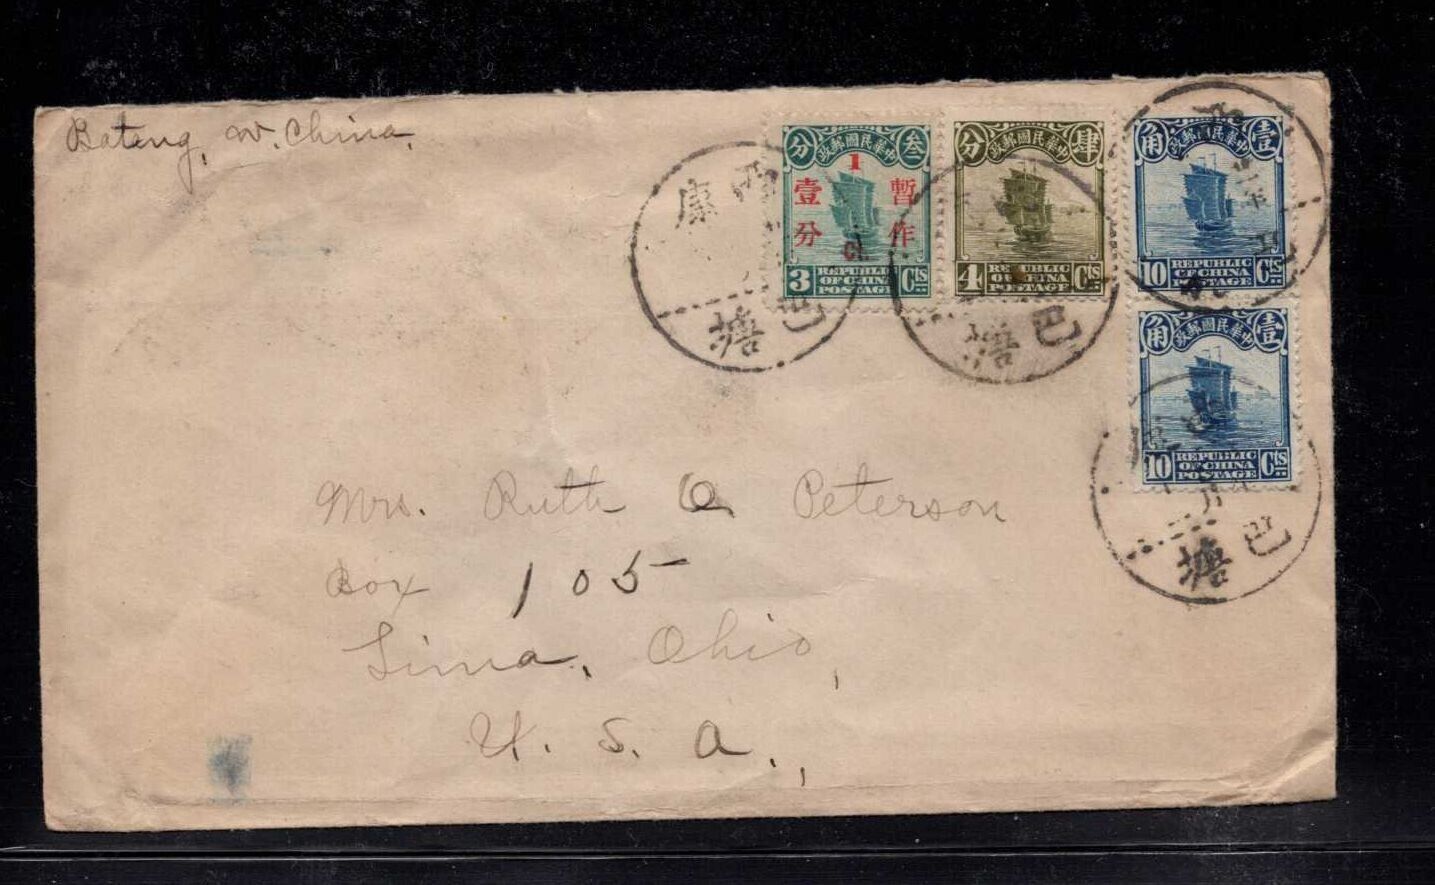 Batang, W. China.
中華民國郵政
叁 分
1
暫作
壹分
ct.
3 REPUBLIC OF CHINA POSTAGE Cts
中華民國郵政
肆 分
4 REPUBLIC OF CHINA POSTAGE Cts
中華民國郵政
壹 角
10 REPUBLIC OF CHINA POSTAGE Cts
中華民國郵政
壹 角
10 REPUBLIC OF CHINA POSTAGE Cts
西康
巴塘
巴塘
巴塘
Mrs. Ruth O Peterson
Box 105
Lima, Ohio,
U. S. A.,